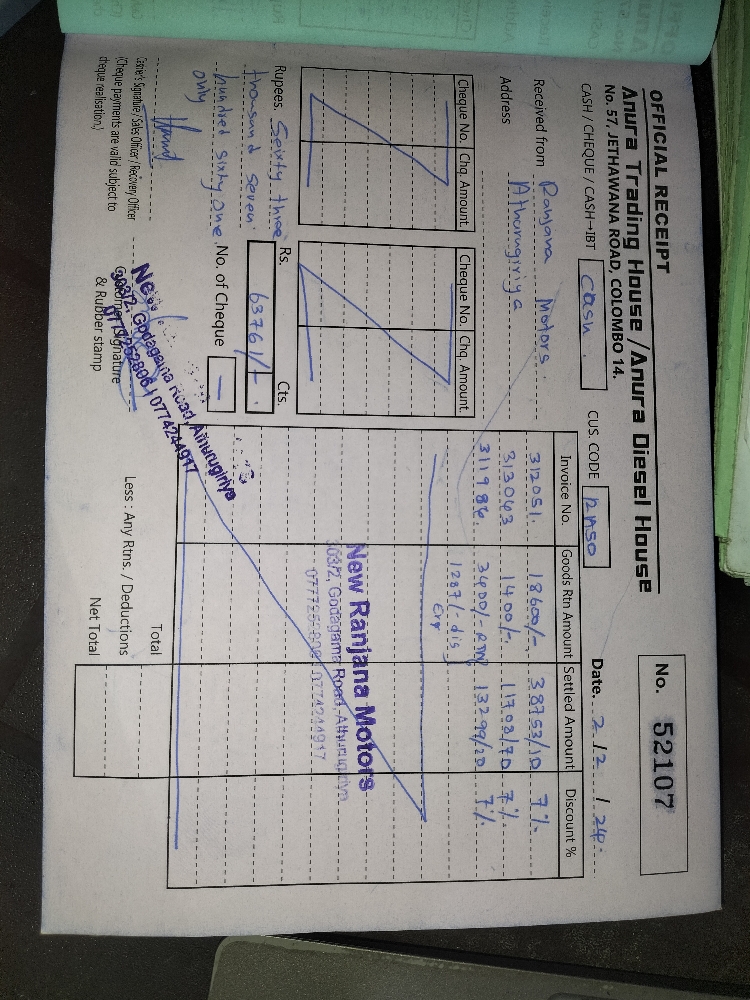 OFFICIAL RECEIPT
Anura Trading House / Anura Diesel House
No. 57, JETHAWANA ROAD, COLOMBO 14.
No. 52107
CASH / CHEQUE / CASH→IBT Cash.
CUS. CODE
Date. 2 / 2 / 24.
Received from Ranjana Motors.
Address Athurugiriya
Cheque No. Chq. Amount
Cheque No. Chq. Amount
Rupees. Seixty three
thousand seven
hundred sixty one
only
Rs. Cts.
63761/-
No. of Cheque —
Cashier's Signature / Sales Officer / Recovery Officer
(Cheque payments are valid subject to
cheque realisation.)
Customer Signature
& Rubber stamp
303/2, Godagama Road, Athurugiriya
0777252806 / 0774244917
Invoice No. Goods Rtn Amount Settled Amount Discount %
312051. 18600/- 38753/10 7%
313043 1400/- 11708/70 7%
311986 3400/- RTN 13299/20 7%
1287/- dis
New Ranjana Motors
303/2, Godagama Road, Athurugiriya
0777252806 / 0774244917
Total
Less : Any Rtns. / Deductions
Net Total